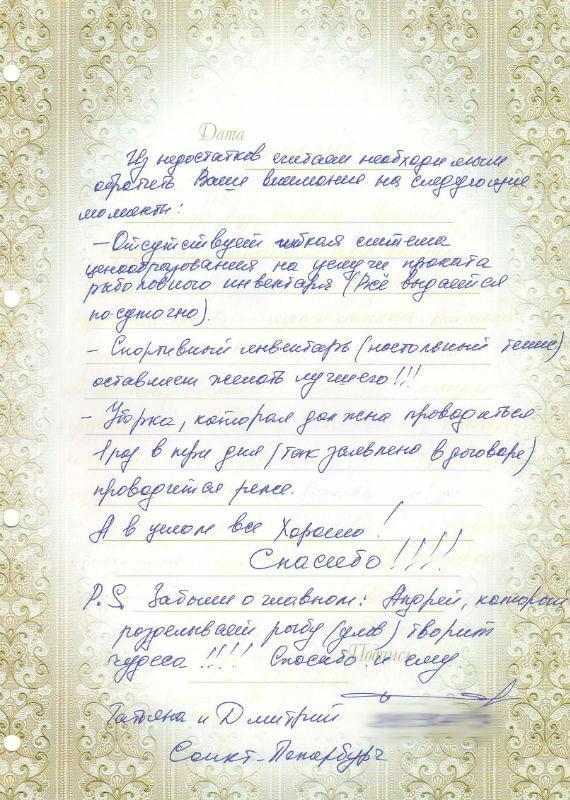 Дата
Из недостатков считаем необходимым
обратить Ваше внимание на следующие
моменты:
– Отсутствует гибкая система
ценообразования на услуги проката
рыболовного инвентаря (Всё выдается
посуточно).
– Спортивный инвентарь (настольный теннис)
оставляет желать лучшего!!!
– Уборка, которая должна проводиться
1 раз в три дня (так заявлено в договоре)
проводится реже.
А в целом все Хорошо!
Спасибо!!!!
P.S. Забыли о главном: Андрей, который
разделывает рыбу (улов) творит
чудеса!!!! Спасибо и ему.
Подпись
Татьяна и Дмитрий
Санкт-Петербург